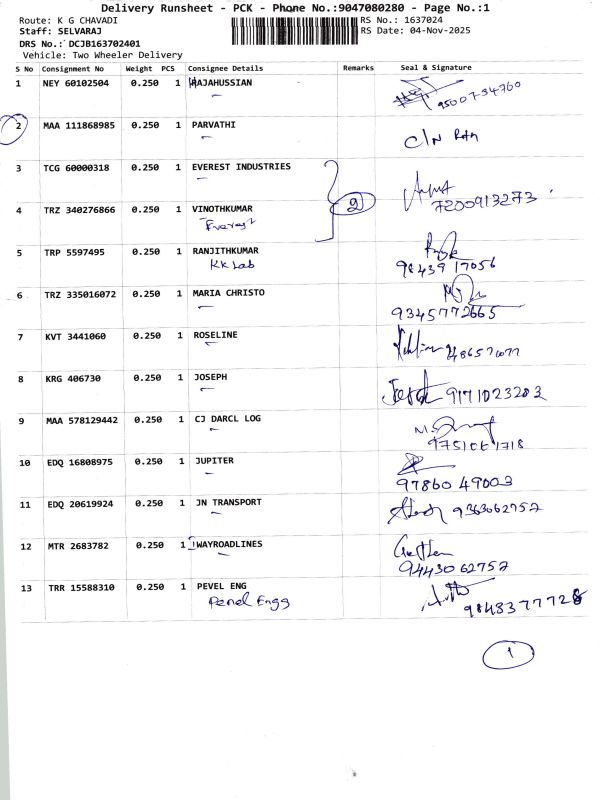 Delivery Runsheet - PCK - Phone No.:9047080280 - Page No.:1
Route: K G CHAVADI
RS No.: 1637024
Staff: SELVARAJ
RS Date: 04-Nov-2025
DRS No.: DCJB163702401
Vehicle: Two Wheeler Delivery
S No Consignment No Weight PCS Consignee Details Remarks Seal & Signature
1 NEY 60102504 0.250 1 RAJAHUSSIAN
2 MAA 111868985 0.250 1 PARVATHI
3 TCG 60000318 0.250 1 EVEREST INDUSTRIES
2 7200913273
4 TRZ 340276866 0.250 1 VINOTHKUMAR
Everest
5 TRP 5597495 0.250 1 RANJITHKUMAR
KK Lab 98439 17056
6 TRZ 335016072 0.250 1 MARIA CHRISTO
9345772665
7 KVT 3441060 0.250 1 ROSELINE
8 KRG 406730 0.250 1 JOSEPH
9171023203
9 MAA 578129442 0.250 1 CJ DARCL LOG
10 EDQ 16808975 0.250 1 JUPITER
97860 49003
11 EDQ 20619924 0.250 1 JN TRANSPORT
9363062752
12 MTR 2683782 0.250 1 WAYROADLINES
94430 62752
13 TRR 15588310 0.250 1 PEVEL ENG
Penel Engg
1